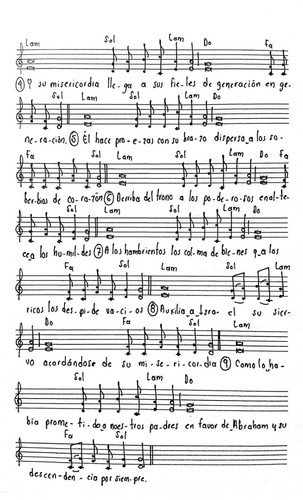 Lam Sol Lam Do Fa
④ Y su misericordia lle-ga a sus fie-les de generación en ge-
Sol Lam Sol Lam
ne-ración. ⑤ Él hace pro-e-zas con su bra-zo dispersa_a los so-
Fa Sol Lam Sol Lam Do Fa
ber-bio de co-ra-zón ⑥ Derriba del trono a los po-de-ro-sos enal-te-
Sol Lam Sol Lam Do
ce_a los hu-mil-des ⑦ A los hambrientos los col-ma de bie-nes y_a los
Fa Sol Lam Sol Lam
ricos los des-pi-de va-ci-os ⑧ Auxilia_a Isra-el su sier-
Do Fa Sol Lam
vo acordándose de su mi-se-ri-cor-dia ⑨ Como lo_ha-
Sol Lam Do
bía prome-ti-do_a nues-tros pa-dres en favor de_Abraham y su
Fa Sol
descen-den-cia por siem-pre.